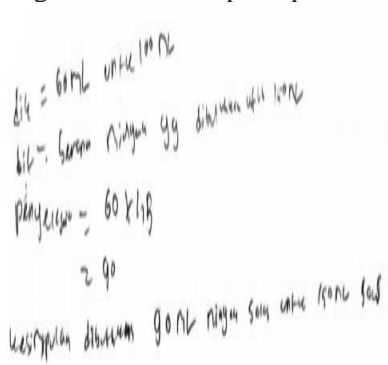 dik = 60 mL untuk 100 mL
dit = berapa minyak yg dibutuhkan utk 150 mL
penyelesaian = 60 x 1,5
= 90
kesimpulan dibutuhkan 90 mL minyak untuk 150 mL